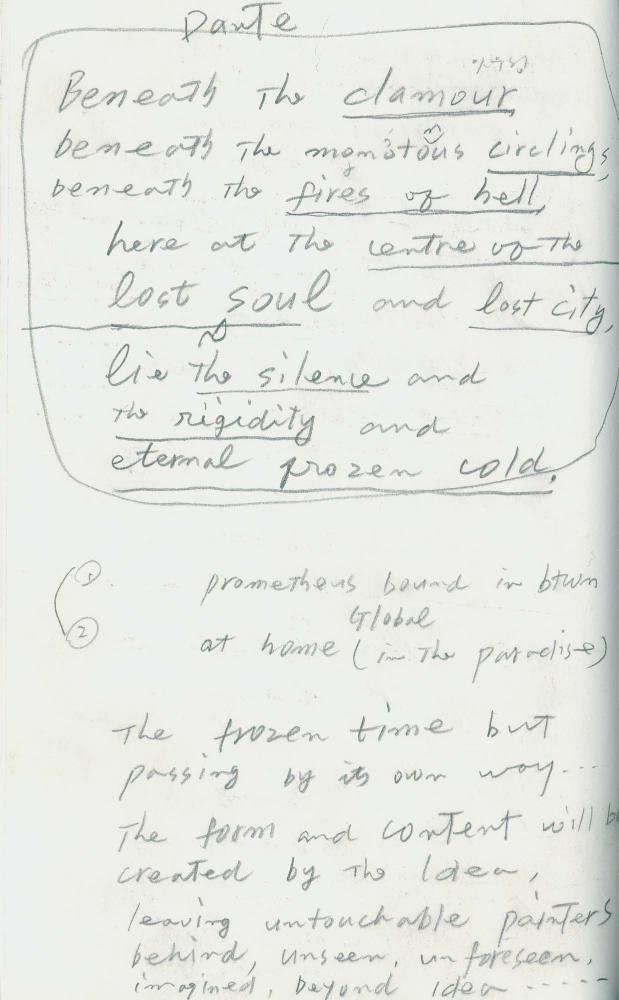 Dante
Beneath the clamour,
beneath the monotous circlings,
beneath the fires of hell,
here at the centre of the
lost soul and lost city,
lie the silence and
the rigidity and
eternal frozen cold.
① prometheus bound in btwn
Global
② at home (in the paradise)
The frozen time but
passing by its own way...
The form and content will be
created by the Idea,
leaving untouchable painters
behind, unseen, unforeseen,
imagined, beyond idea ......